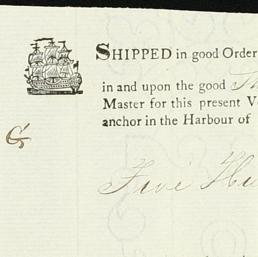 SHIPPED in good Order
in and upon the good
Master for this present V
anchor in the Harbour of
G
Five Hu